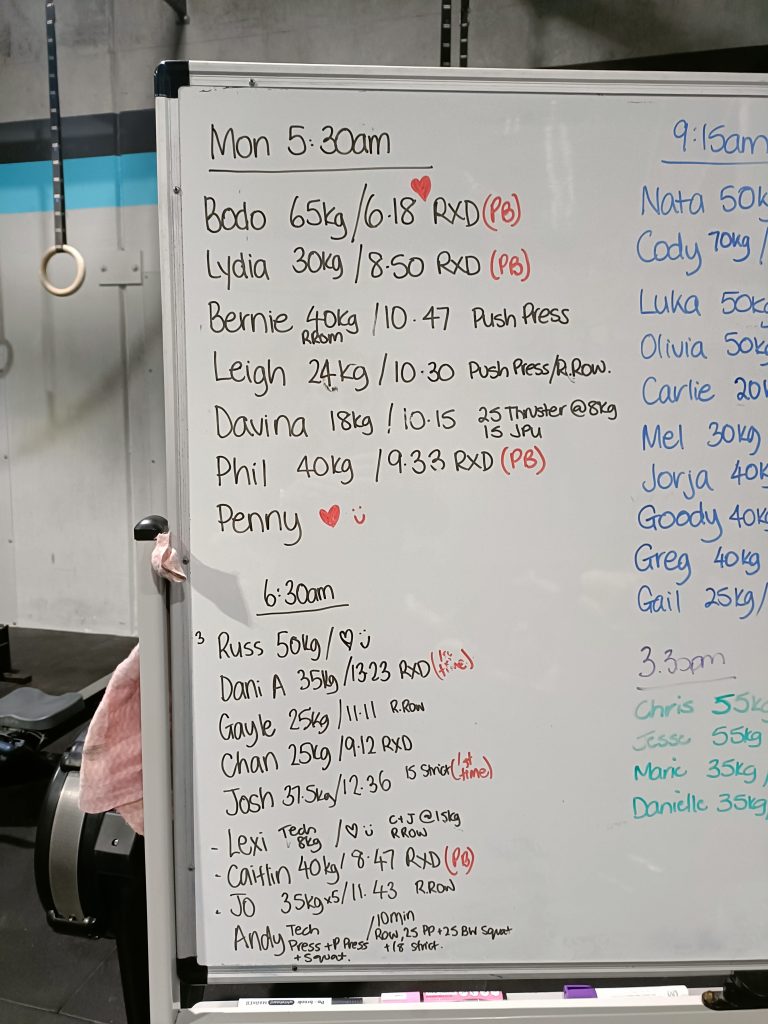 Mon 5:30am
Bodo 65kg/6.18 ♥ RXD (PB)
Lydia 30kg/8.50 RXD (PB)
Bernie 40kg/10.47 Push Press
RRom
Leigh 24kg/10.30 Push Press/R.Row.
Davina 18kg/10.15 25 Thruster @8kg
15 JPU
Phil 40kg/9.33 RXD (PB)
Penny ♥ ü
6:30am
3 Russ 50kg/♡ü
Dani A 35kg/13.23 RXD (1st time)
Gayle 25kg/11.11 R.Row
Chan 25kg/9.12 RXD
Josh 37.5kg/12.36 15 Strict (1st time)
- Lexi Tech 8kg/♡ü C+J @15kg
RRow
- Caitlin 40kg/8.47 RXD (PB)
- Jo 35kg x5/11.43 R.Row
Andy Tech
Press + P Press
+ Squat.
/10min
Row, 25 PP + 25 BW Squat
+ 18 Strict.
9:15am
Nata 50k
Cody 70kg/
Luka 50kg
Olivia 50k
Carlie 20
Mel 30kg
Jorja 40k
Goody 40k
Greg 40kg
Gail 25kg/
3.30pm
Chris 55kg
Jesse 55kg
Marie 35kg/
Danielle 35kg